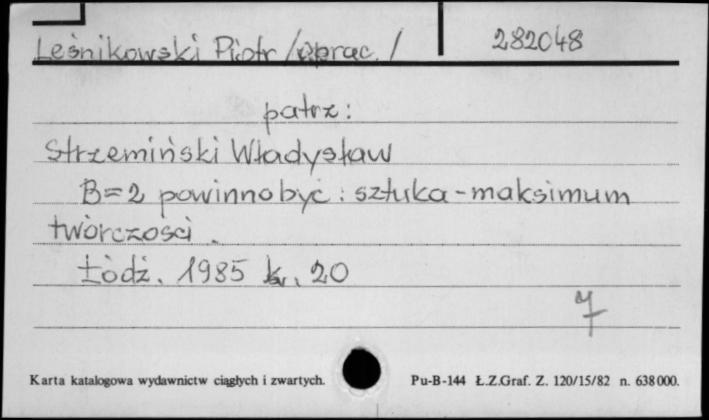 Leśnikowski Piotr /oprac. / 282048
patrz:
Strzemiński Władysław
B=2 powinno być : sztuka - maksimum
twórczości .
Łódź. 1985 k. 20
7
Karta katalogowa wydawnictw ciągłych i zwartych. Pu-B-144 Ł.Z.Graf. Z. 120/15/82 n. 638000.